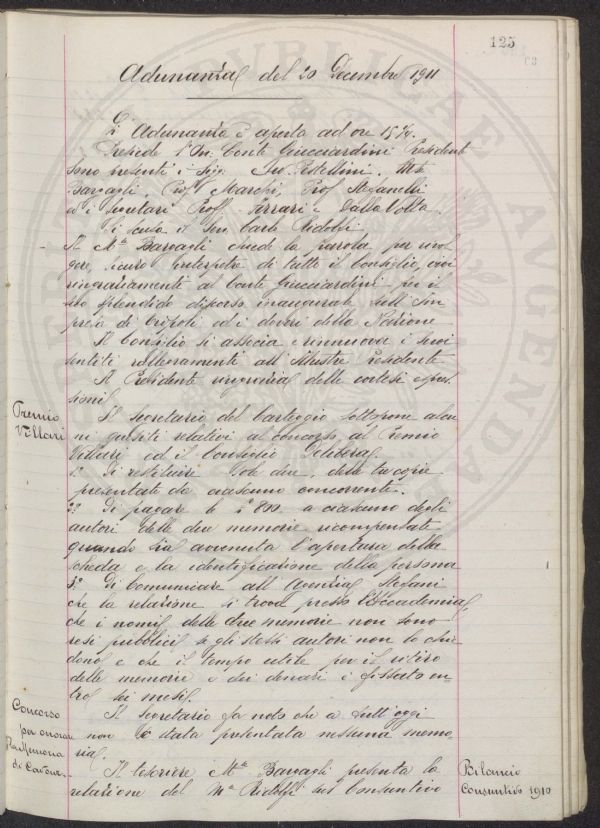 125
Adunanza del 20 Decembre 1911
L'Adunanza è aperta ad ore 15 ½.
Presiede l'On. Conte Guicciardini Presidente
sono presenti i Sig. Pestellini, M.se
Bargagli, Prof. Marchi, Prof. Stefanelli
ed i Segretari Proff. Ferrari e Dalla Volta
Si scusa il Sen. Carlo Ridolfi.
Il M.se Bargagli chiede la parola per rivol
gere, sicuro interprete di tutto il Consiglio, vivi
ringraziamenti al Conte Guicciardini per il
suo splendido discorso inaugurale sull'Im
presa di Tripoli ed i doveri della Nazione
Il Consiglio si associa e rinnuova i suoi
sentiti rallegramenti all'Illustre Presidente
Il Presidente ringrazia delle cortesi espres
sioni.
Premio
Villari
Il Segretario del Carteggio sottopone alcu
ni quisiti relativi al concorso al Premio
Villari ed il Consiglio delibera
1.° Di restituire sole due, delle tre copie
presentate da ciascuno concorrente.
2.° Di pagare le £ 800. a ciascuno degli
autori delle due memorie ricompensate
quando sia avvenuta l'apertura della
scheda e la identificazione della persona
3.° Di comunicare all'Agenzia Stefani
che la relazione si trova presso l'Accademia,
che i nomi delle due memorie non sono
resi pubblici se gli stessi autori non lo chie
dono e che il tempo utile per il ritiro
delle memorie e dei denari è fissato en
tro sei mesi.
Concorso
per onorare
la Memoria
di Cavour
Il Segretario fa noto che a tutt'oggi
non è stata presentata nessuna memo
ria.
Il tesoriere M.se Bargagli presenta la
relazione del M.se Ridolfi sul Consuntivo
Bilancio
Consuntivo 1910